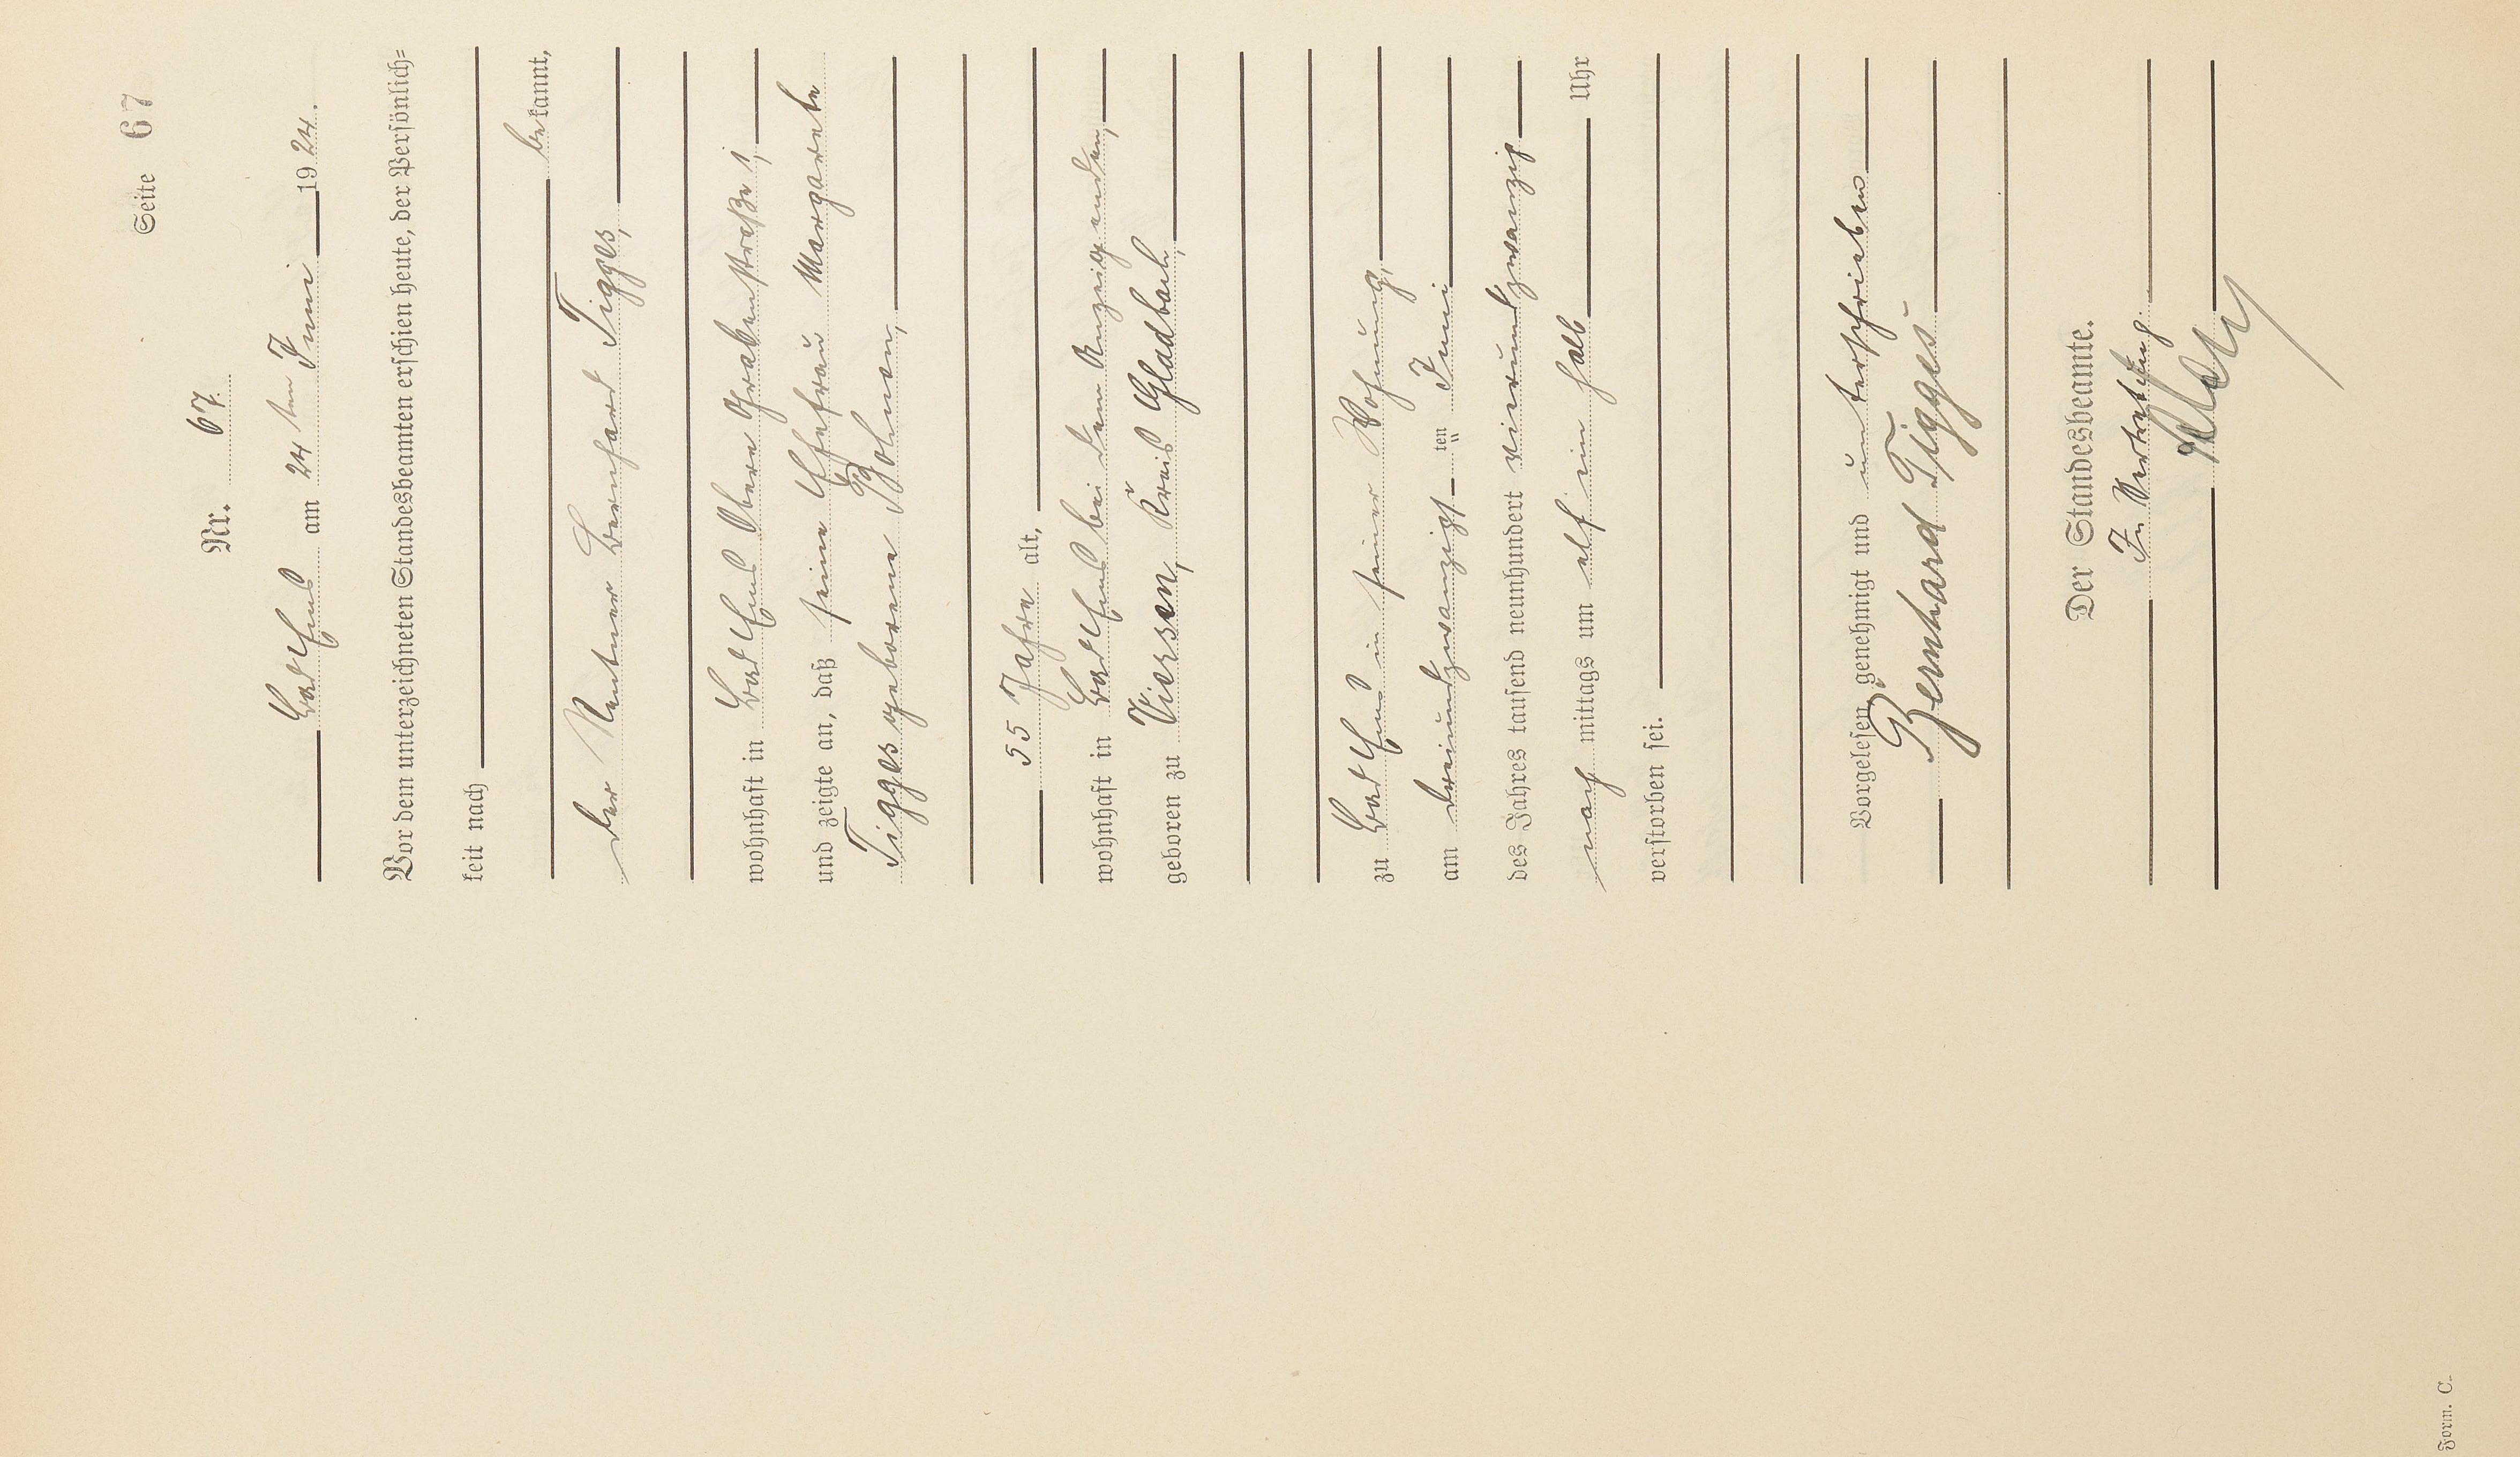 Seite 67
Nr. 67.
Bad Ems am 24 ten Juni 1924.
Vor dem unterzeichneten Standesbeamten erschien heute, der Persönlich=
keit nach
bekannt,
der Rentner Bernhard Tigges,
wohnhaft in Bad Ems Obere Grabenstraße 1,
und zeigte an, daß seine Ehefrau Margarete
Tigges geborene Bohnen,
55 Jahre alt,
wohnhaft in Bad Ems bei dem Anzeigenden,
geboren zu Viersen, Kreis Gladbach,
zu Bad Ems in seiner Wohnung,
am dreiundzwanzigst ten Juni
des Jahres tausend neunhundert vierundzwanzig
nach mittags um elf ein halb Uhr
verstorben sei.
Vorgelesen, genehmigt und unterschrieben
Bernhard Tigges
Der Standesbeamte.
In Vertretung.
Form. C.